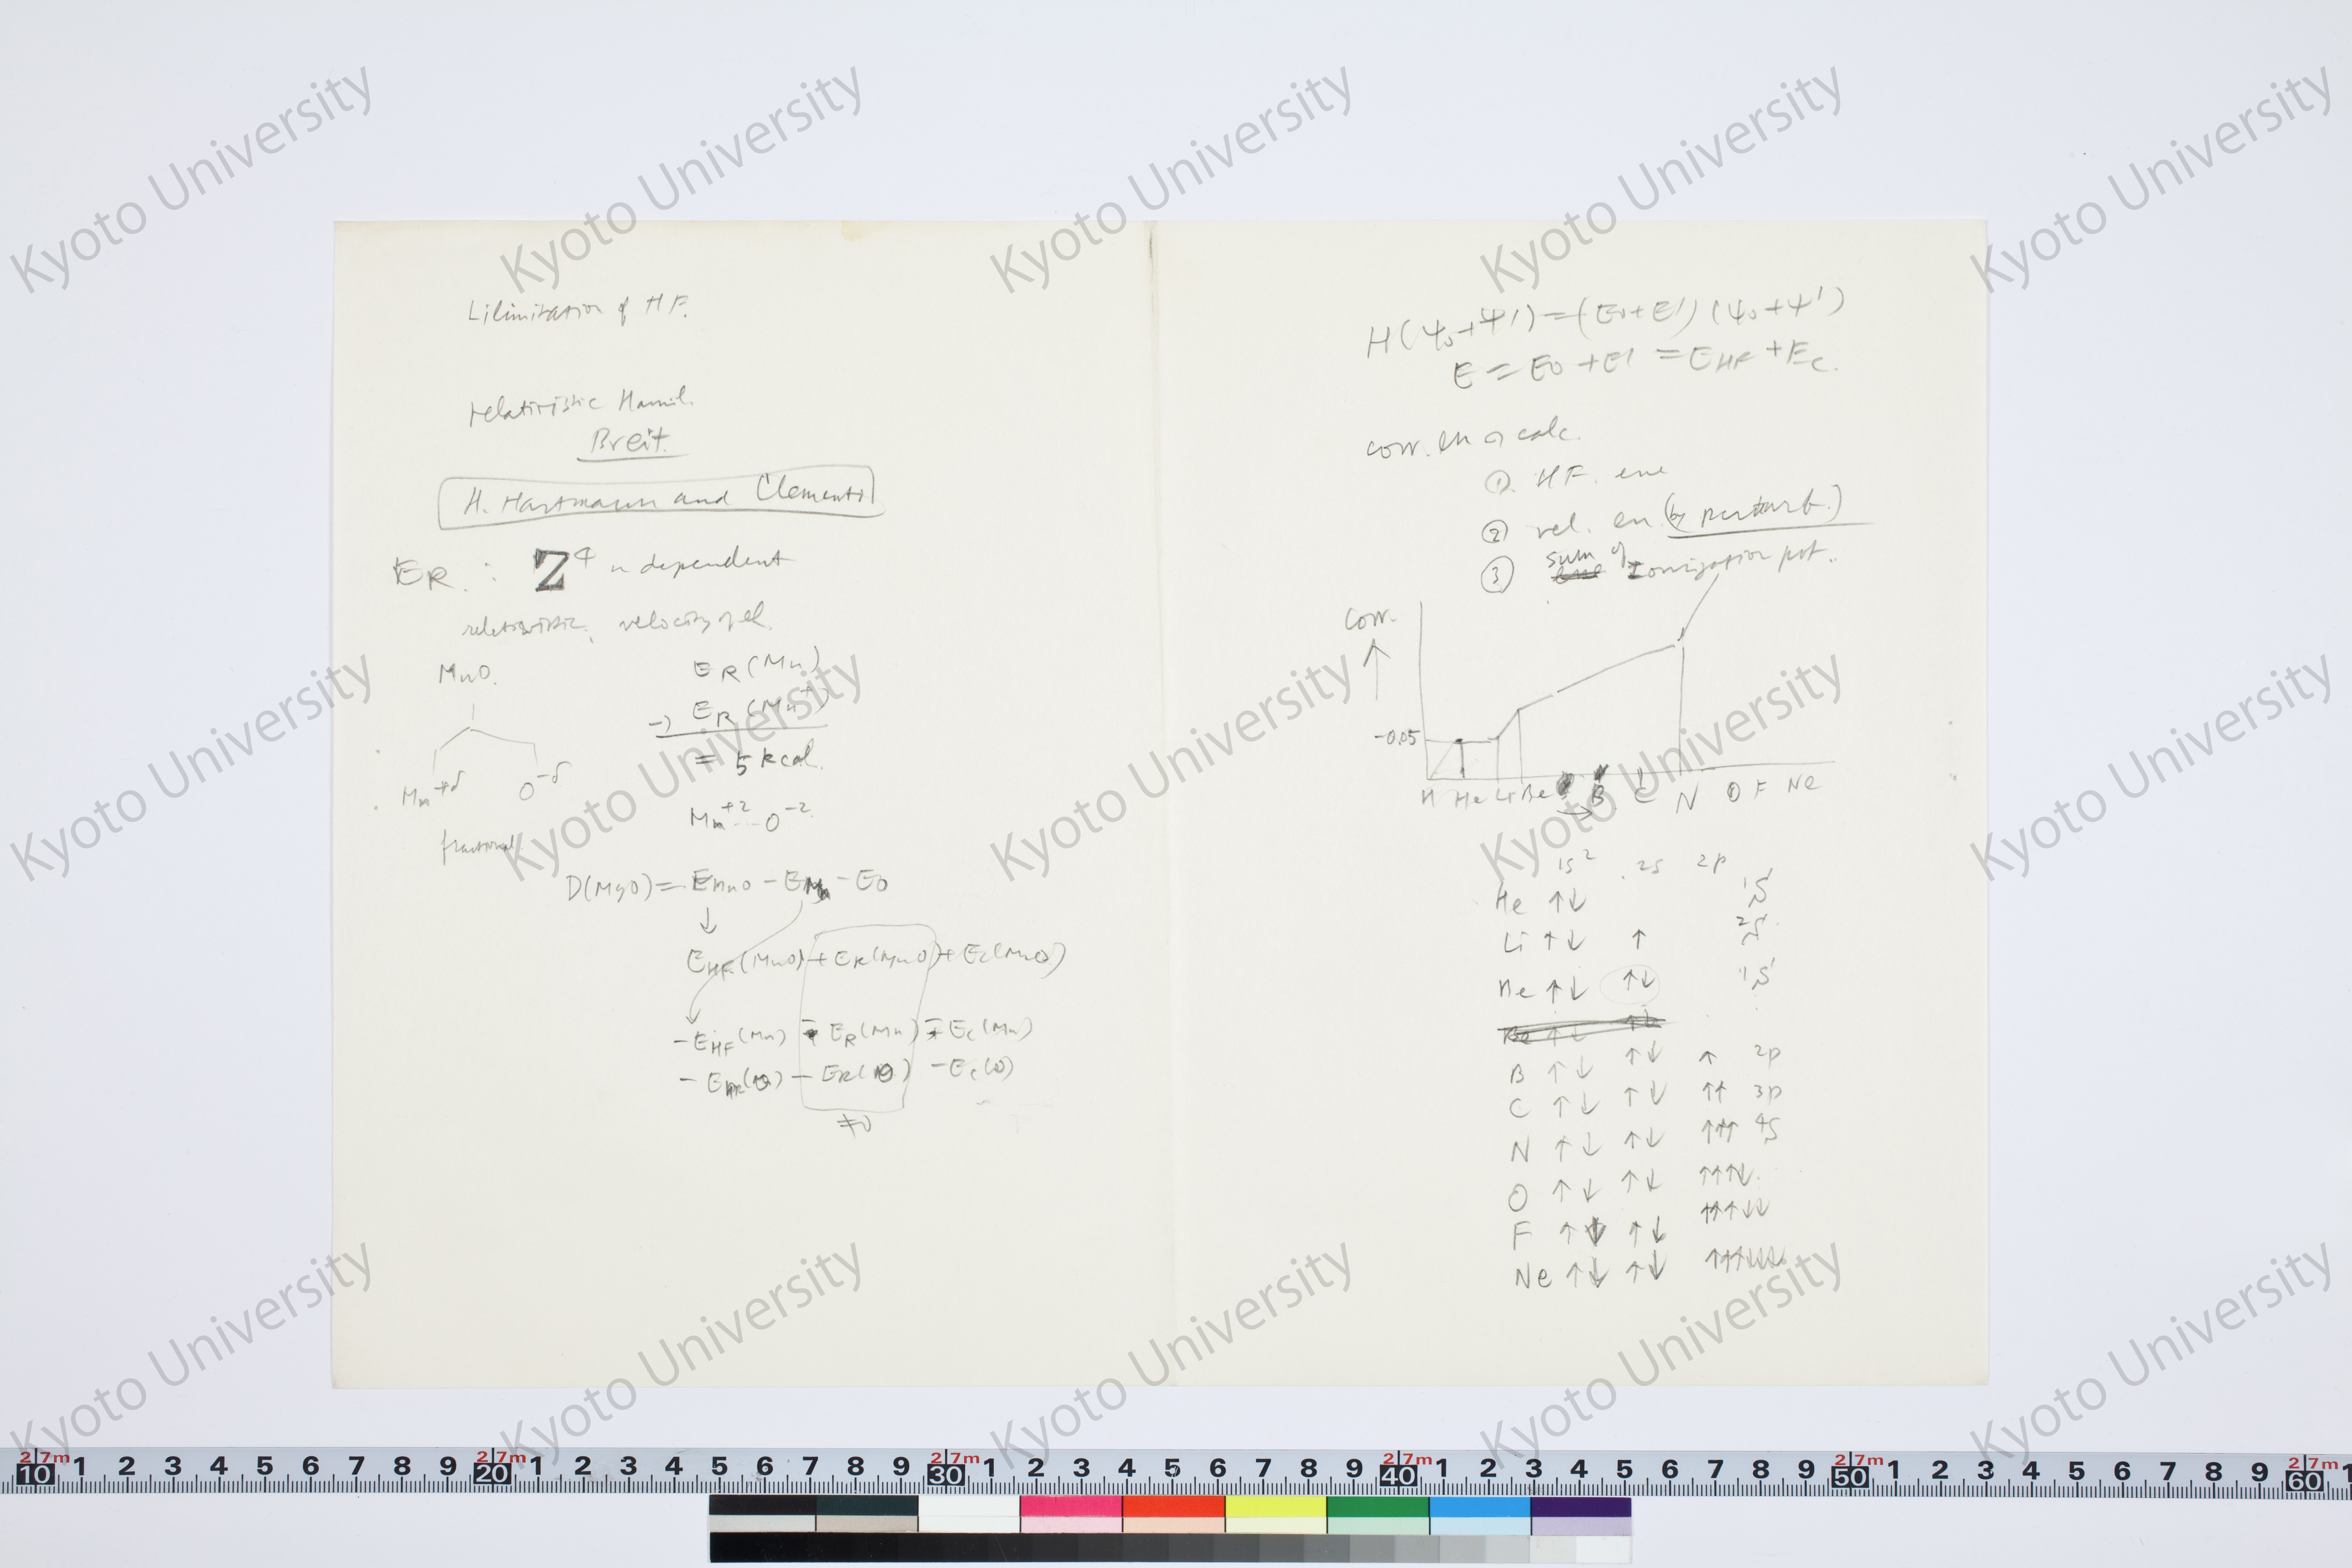 Lilimitation of HF.
relativistic Hamil.
Breit.
H. Hartmann and Clementi
ER : Z⁴ independent
relativistic, velocity of el.
MnO.
Mn+δ O-δ
fractional
ER(Mn)
-) ER(Mn+)
= 5 kcal.
Mn+2...O-2
D(MgO)= EMnO - EMn - EO
↓
EHF(MnO) + ER(MnO) + Ec(MnO)
- EHF(Mn) - ER(Mn) - Ec(Mn)
- EHF(O) - ER(O) - Ec(O)
≠0
H(Ψ0+Ψ')=(E0+E')(Ψ0+Ψ')
E = E0 + E' = EHF + Ec.
corr. en の calc.
① HF. ene
② rel. en. (by perturb.)
③ sum of Ionization pot..
Corr.
↑
-0.05
H He Li Be B C N O F Ne
→
1s² 2s 2p
He ↑↓ 1S
Li ↑↓ ↑ 2S
Be ↑↓ ↑↓ 1S
B ↑↓ ↑↓ ↑ 2p
C ↑↓ ↑↓ ↑↑ 3p
N ↑↓ ↑↓ ↑↑↑ 4S
O ↑↓ ↑↓ ↑↑↑↓
F ↑↓ ↑↓ ↑↑↑↓↓
Ne ↑↓ ↑↓ ↑↑↑↓↓↓
Kyoto University
2.7m 2.7m 2.7m 2.7m 2.7m 2.7m
10 1 2 3 4 5 6 7 8 9 20 1 2 3 4 5 6 7 8 9 30 1 2 3 4 5 6 7 8 9 40 1 2 3 4 5 6 7 8 9 50 1 2 3 4 5 6 7 8 9 60 1